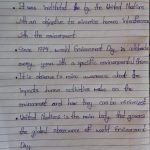 It was instituted by the United Nations
with an objective to minimise human interference
with the environment.
Since 1974, world Environment Day is celebrated
every year with a specific environmental theme
It is observe to raise awareness about the
impacts human activities make on the
environment and how they can be minimized
United Nations is the main body that governs
the global observance of world Environment
Day